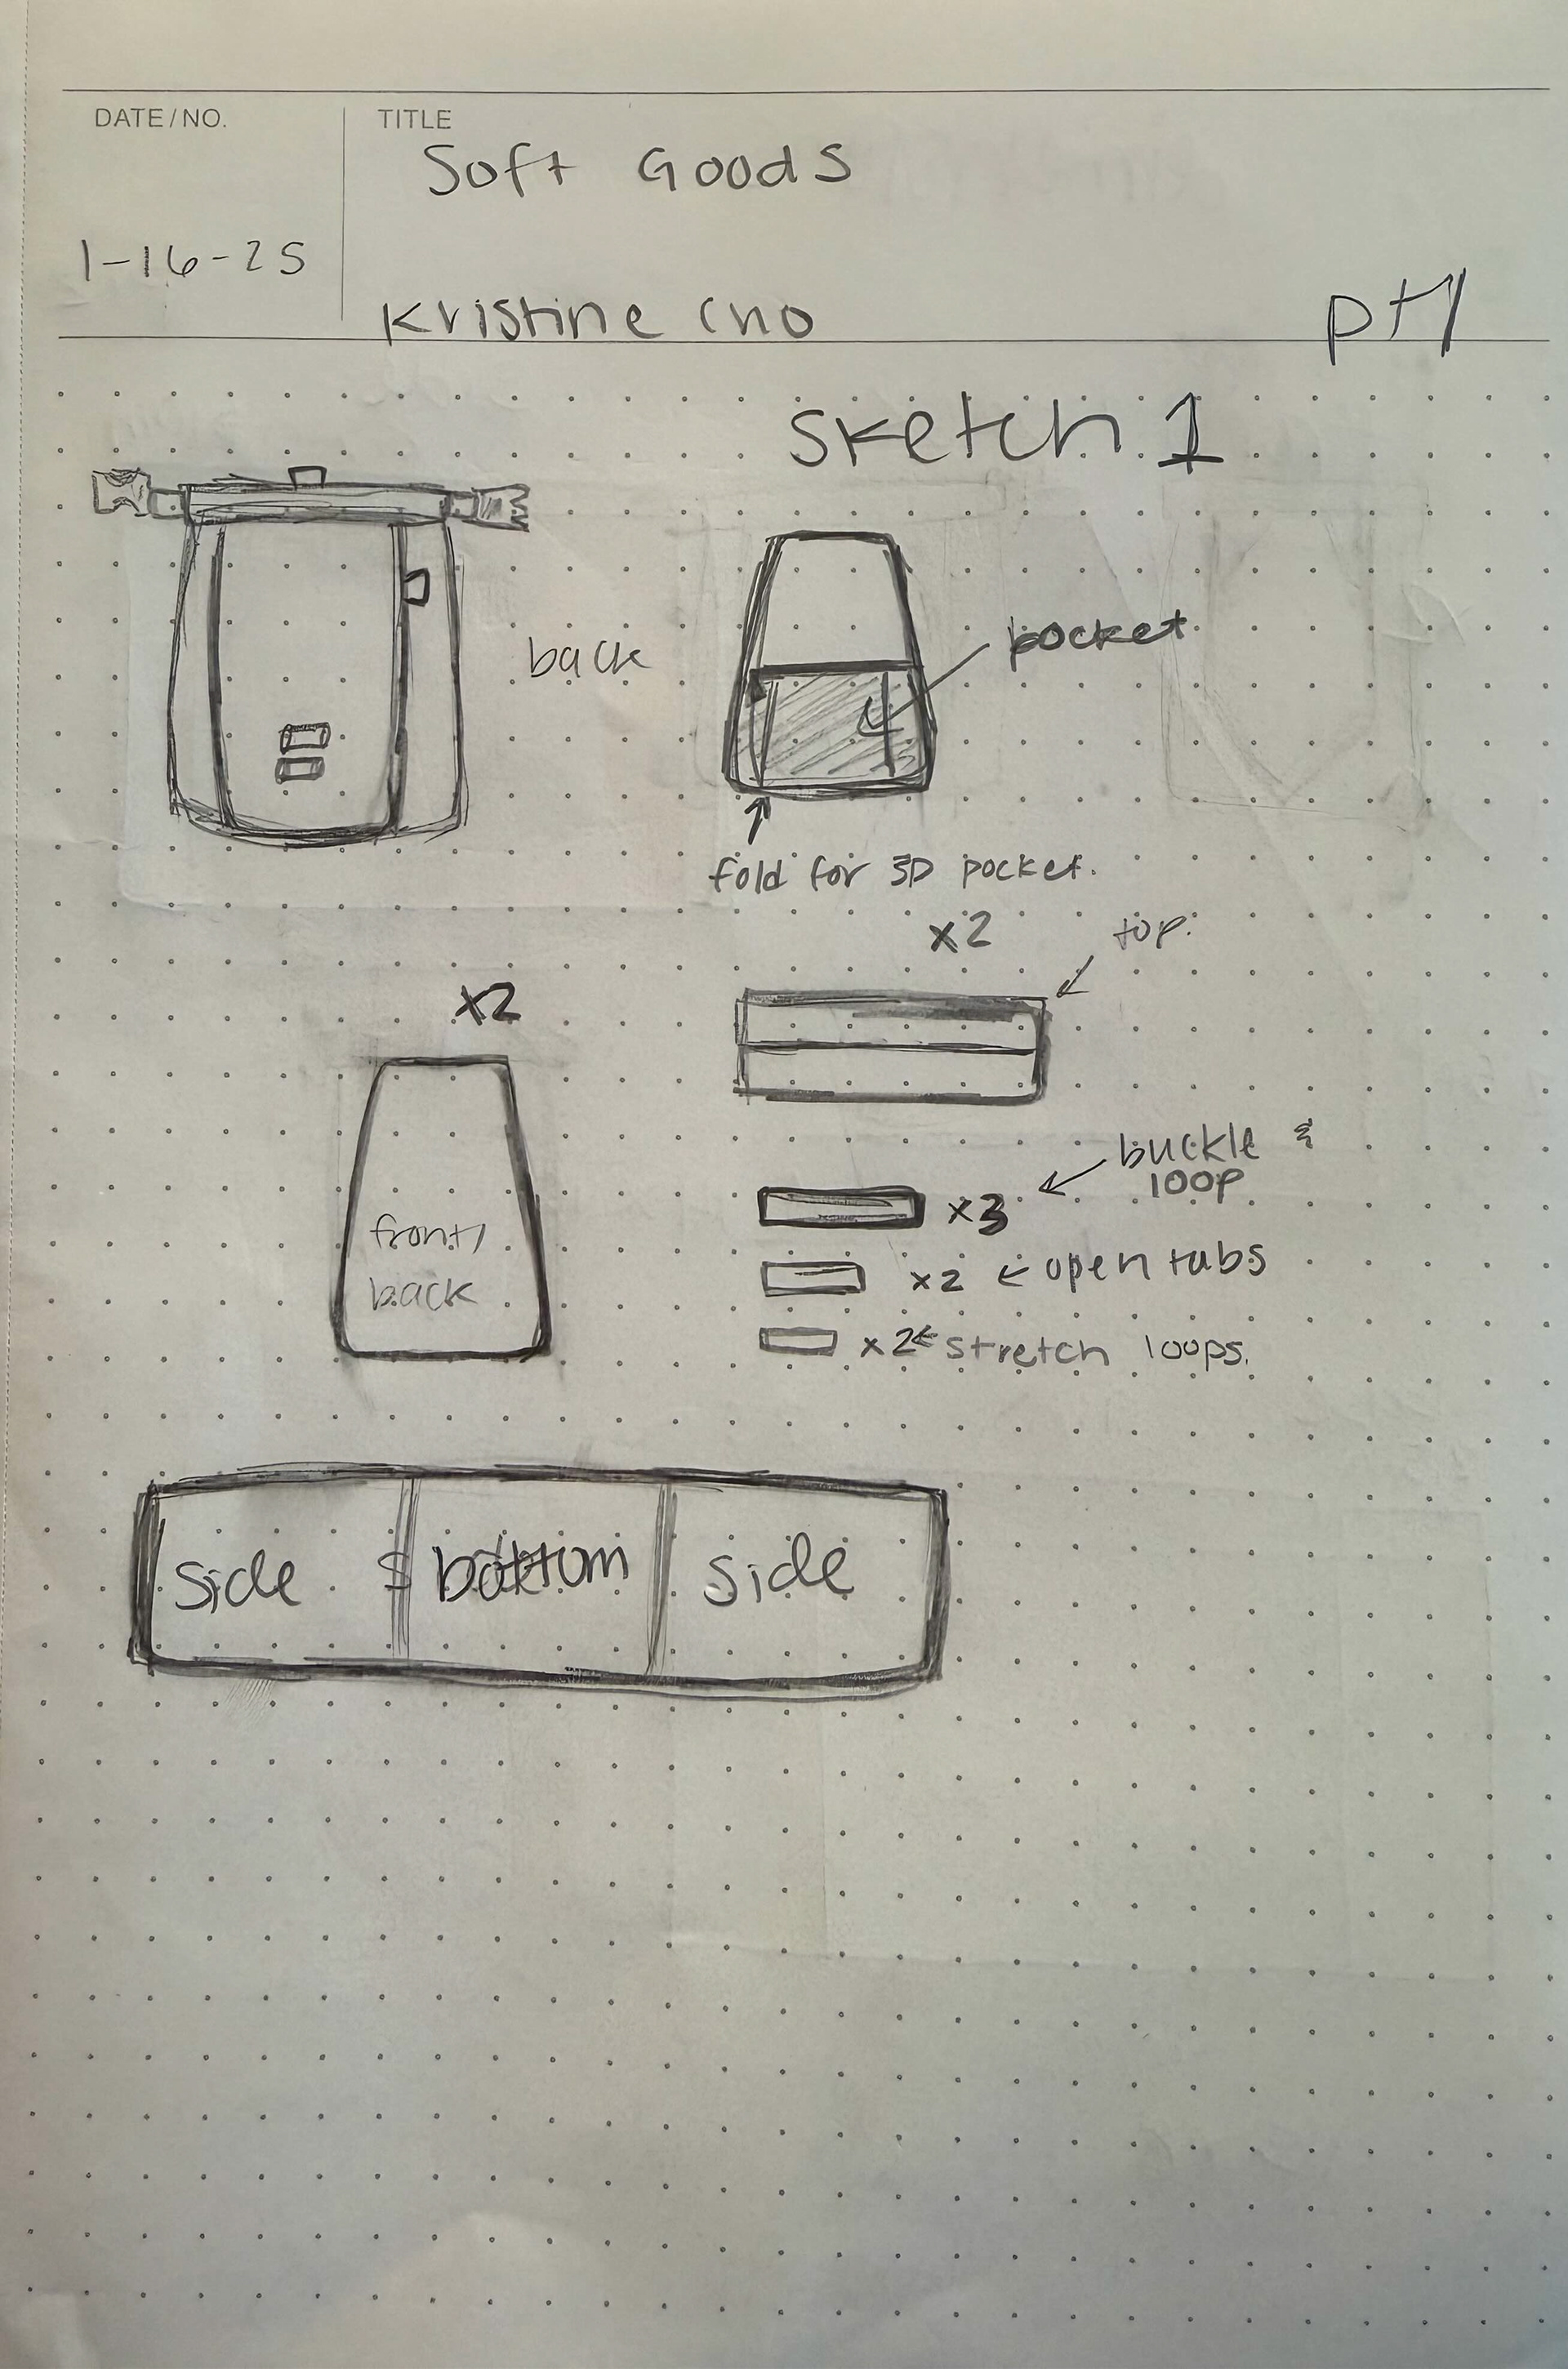 DATE/NO.
TITLE
Soft Goods
1-16-25
Kristine Cho
pt 1
Sketch 1
back
pocket
fold for 3D pocket.
x2
top.
x2
front/
back
buckle &
loop
x3
x2 ← open tabs
x2 ← stretch loops.
side
bottom
side